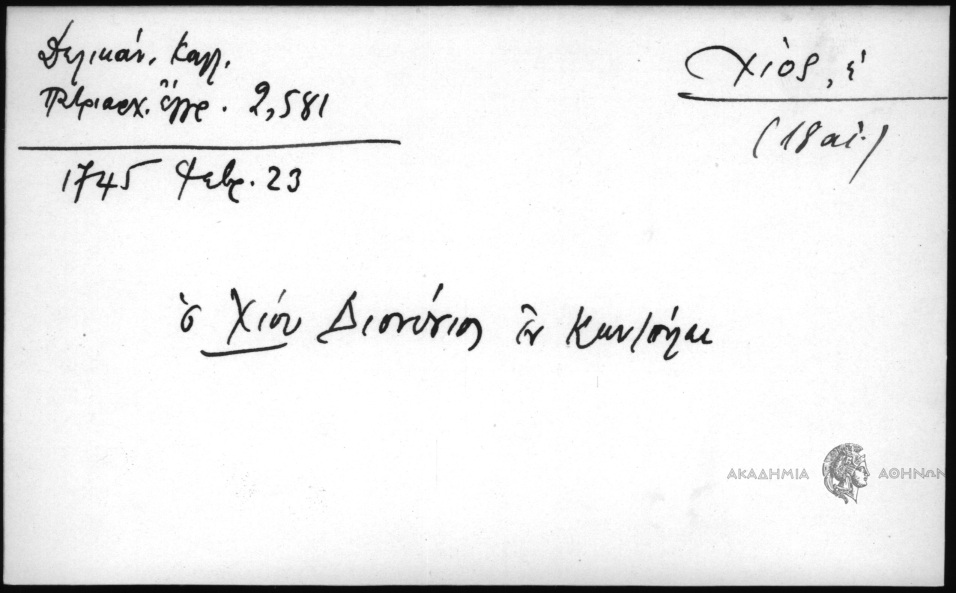 Δελικάν. Καλλ.
Πατριαρχ. ἔγγρ. 2,581
1745 Φεβρ. 23
Χίος, ἡ
(18 αἰ.)
ὁ Χίου Διονύσιος ἐν Κων/πόλει
ΑΚΑΔΗΜΙΑ ΑΘΗΝΩΝ